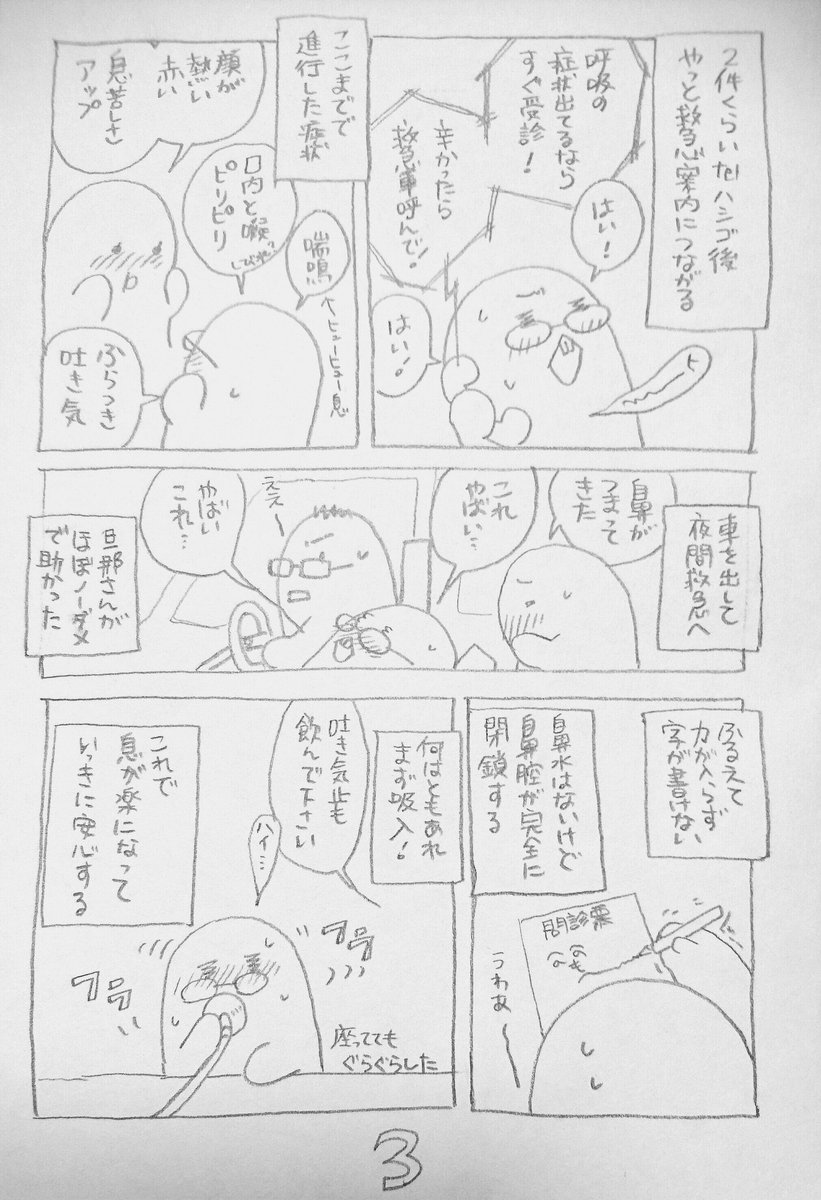 2件くらいtelハシゴ後
やっと救急案内につながる
呼吸の
症状出てるなら
すぐ受診！
はい！
辛かったら
救急車呼んで！
はい！
ト
ここまでで
進行した症状
顔が
熱い
赤い
息苦しさ
アップ
口内と喉
ピリピリ
喘鳴
ヒューヒュー息
ふらつき
吐き気
車を出して
夜間救急へ
鼻が
つまって
きた
これ
やばい…
ええー
やばい
これ…
旦那さんが
ほぼノーダメ
で助かった
ふるえて
力が入らず
字が書けない
問診票
うわあ
鼻水はないけど
鼻腔が完全に
閉鎖する
何はともあれ
まず吸入！
吐き気止も
飲んで下さい
ハイ…
これで
息が楽になって
いっきに安心する
フラ
フラ
座ってても
ぐらぐらした
3